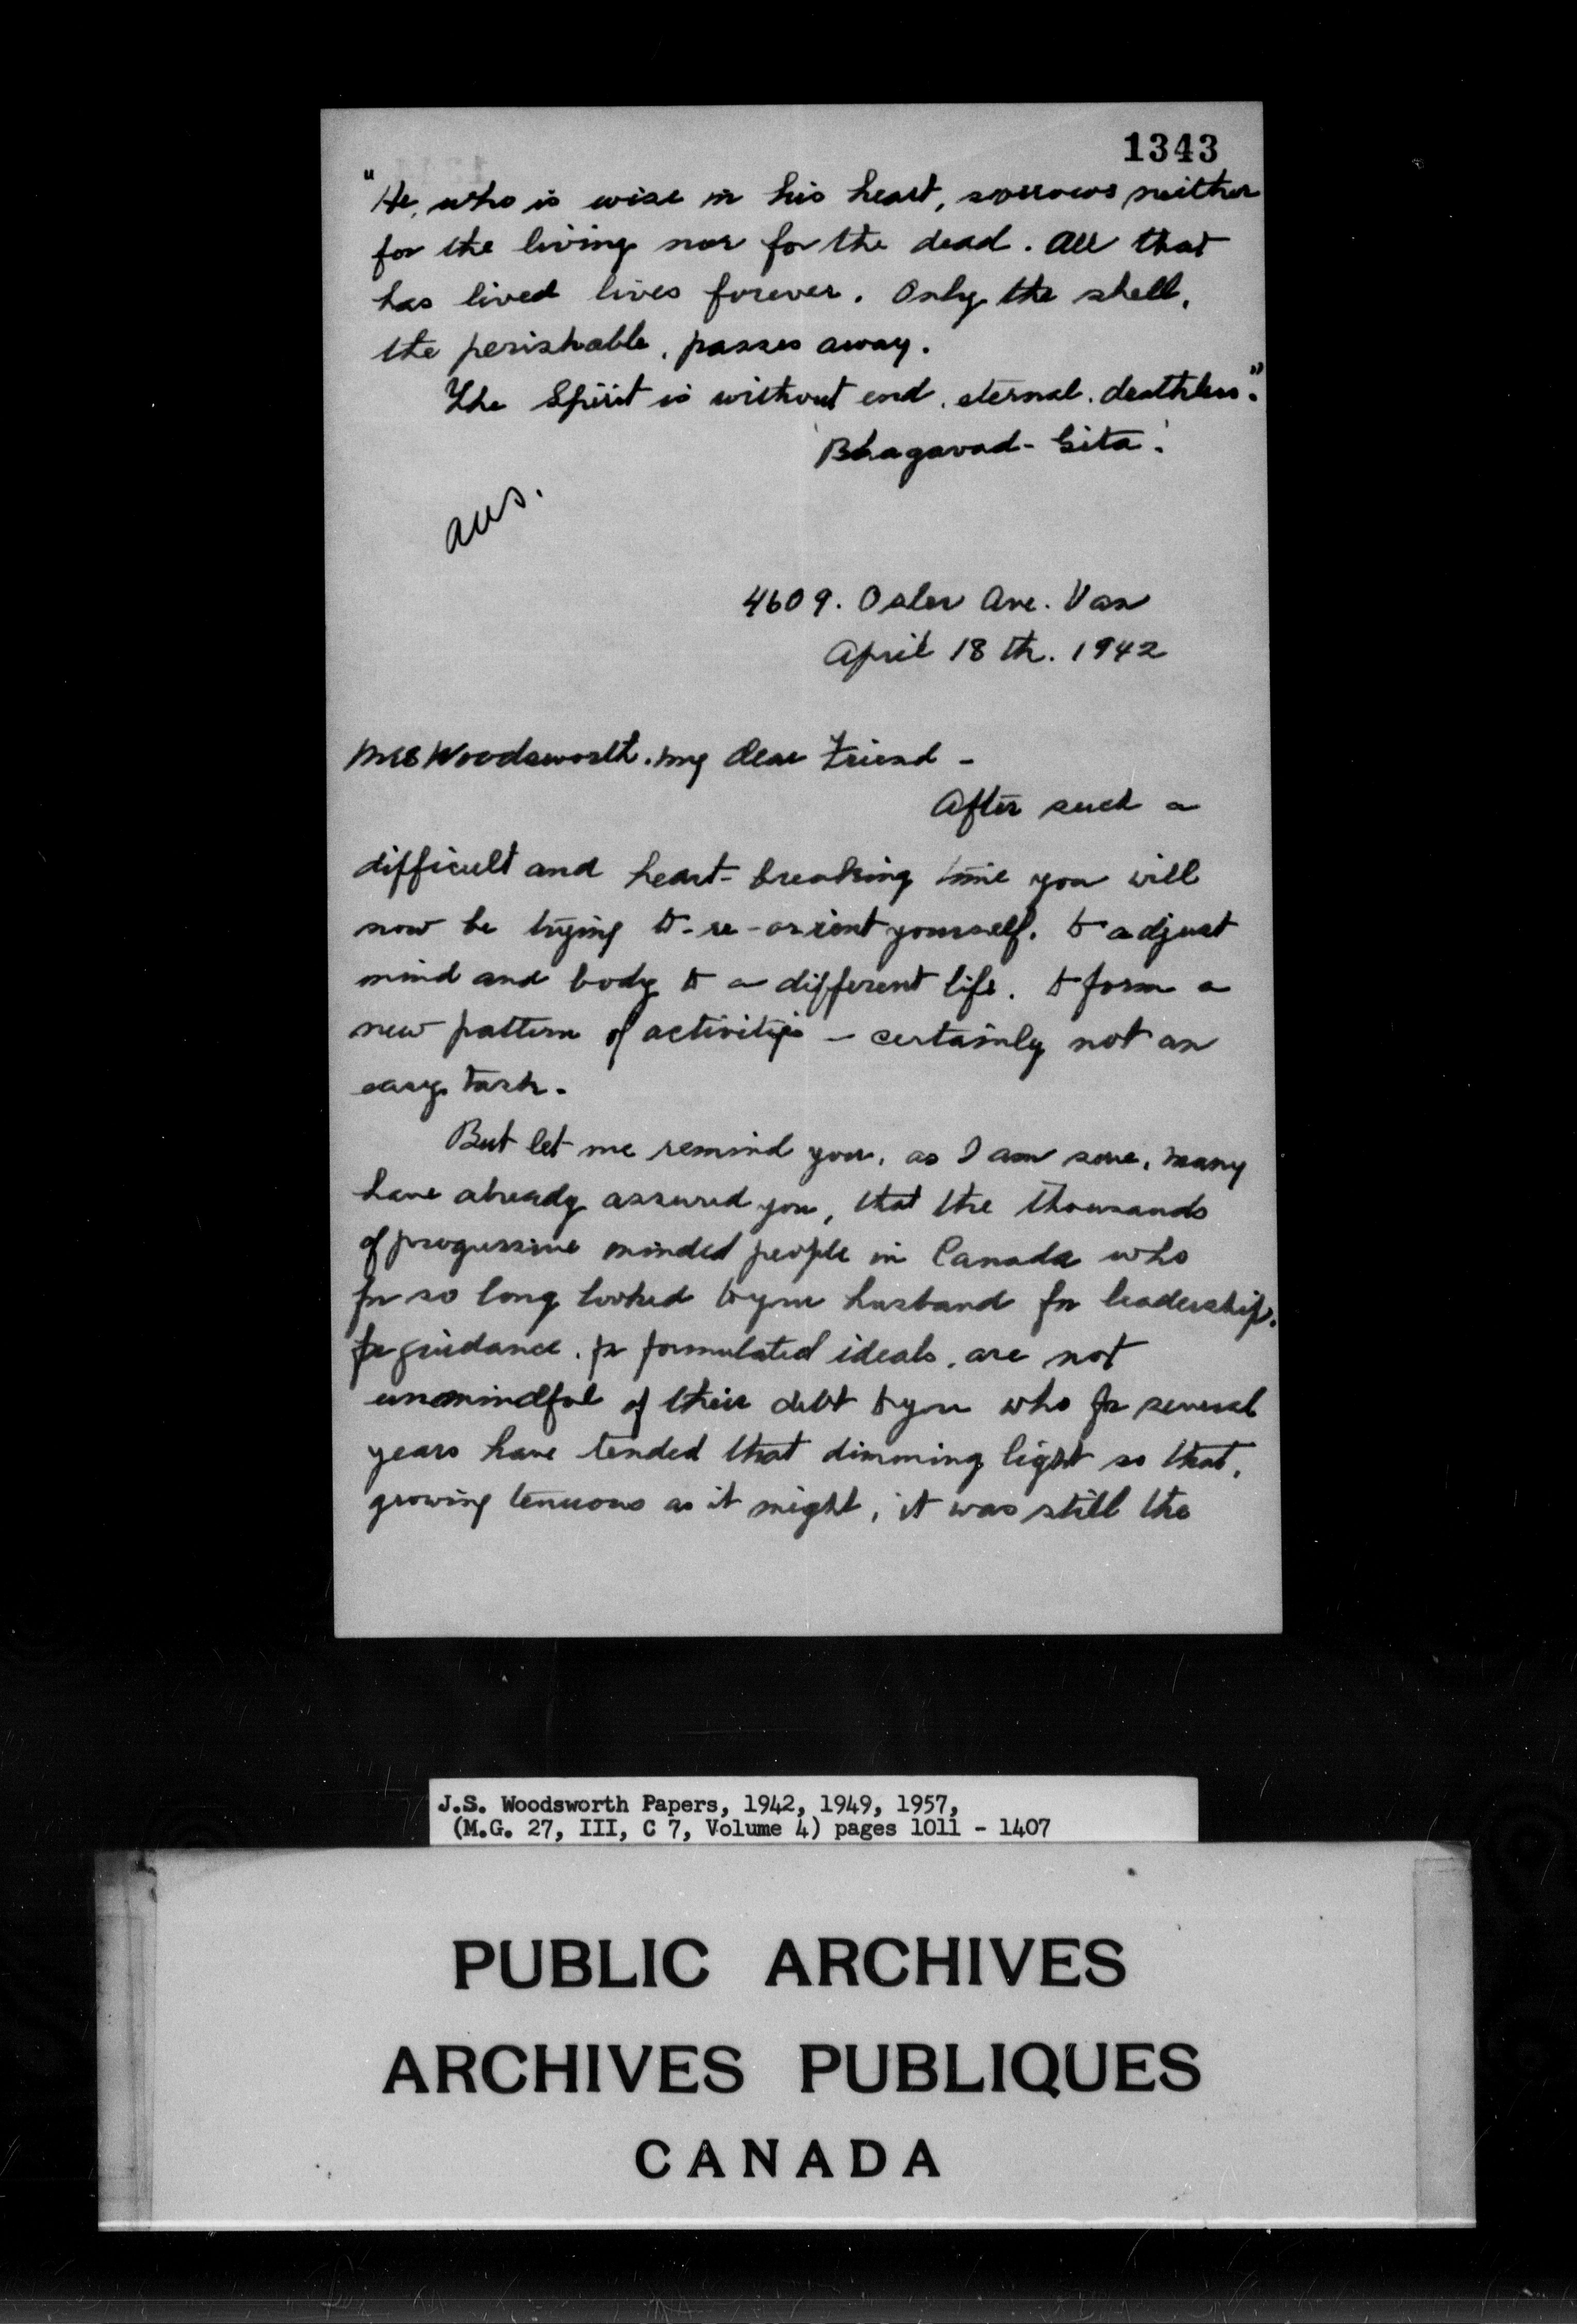 1343
"He, who is wise in his heart, sorrows neither
for the living nor for the dead. All that
has lived lives forever. Only the shell,
the perishable, passes away.
The Spirit is without end, eternal, deathless."
'Bhagavad-Gita.'
ans.
4609. Osler Ave. Van
April 18 th. 1942
Mrs Woodsworth. my dear Friend -
After such a
difficult and heart-breaking time you will
now be trying to re-orient yourself, to adjust
mind and body to a different life, to form a
new pattern of activities - certainly not an
easy task.
But let me remind you, as I am sure, many
have already assured you, that the thousands
of progressive minded people in Canada who
for so long looked to your husband for leadership,
for guidance, for formulated ideals, are not
unmindful of their debt to you who for several
years have tended that dimming light so that,
growing tenuous as it might, it was still the
J.S. Woodsworth Papers, 1942, 1949, 1957,
(M.G. 27, III, C 7, Volume 4) pages 1011 - 1407
PUBLIC ARCHIVES
ARCHIVES PUBLIQUES
CANADA